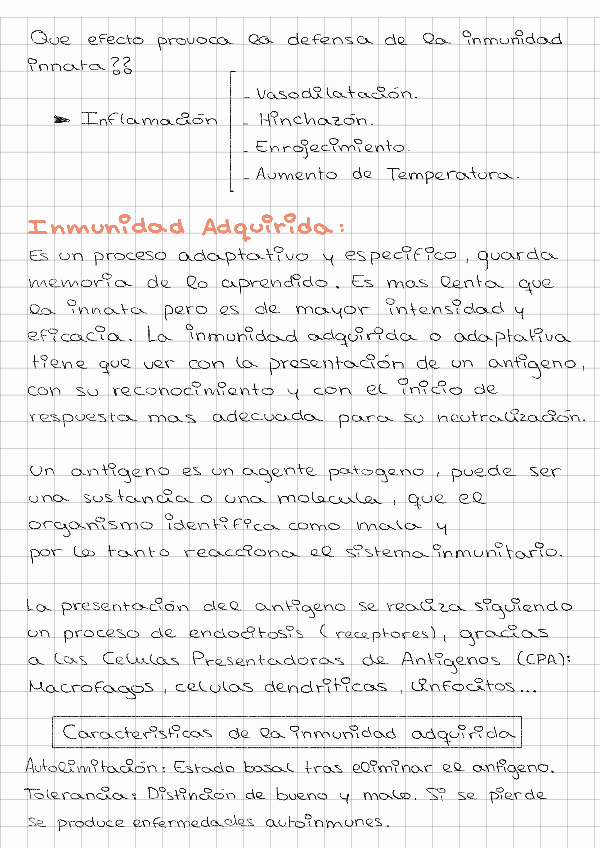 Que efecto provoca la defensa de la inmunidad
innata??
➤ Inflamación
- Vasodilatación.
- Hinchazón.
- Enrojecimiento.
- Aumento de Temperatura.
Inmunidad Adquirida:
Es un proceso adaptativo y especifico, guarda
memoria de lo aprendido. Es mas lenta que
la innata pero es de mayor intensidad y
eficacia. La inmunidad adquirida o adaptativa
tiene que ver con la presentación de un antigeno,
con su reconocimiento y con el inicio de
respuesta mas adecuada para su neutralización.
Un antigeno es un agente patogeno, puede ser
una sustancia o una molecula, que el
organismo identifica como mala y
por lo tanto reacciona el sistema inmunitario.
La presentación del antigeno se realiza siguiendo
un proceso de endocitosis (receptores), gracias
a las Celulas Presentadoras de Antigenos (CPA):
Macrofagos, celulas dendriticas, linfocitos...
Caracteristicas de la inmunidad adquirida
Autolimitación: Estado basal tras eliminar el antigeno.
Tolerancia: Distinción de bueno y malo. Si se pierde
se produce enfermedades autoinmunes.